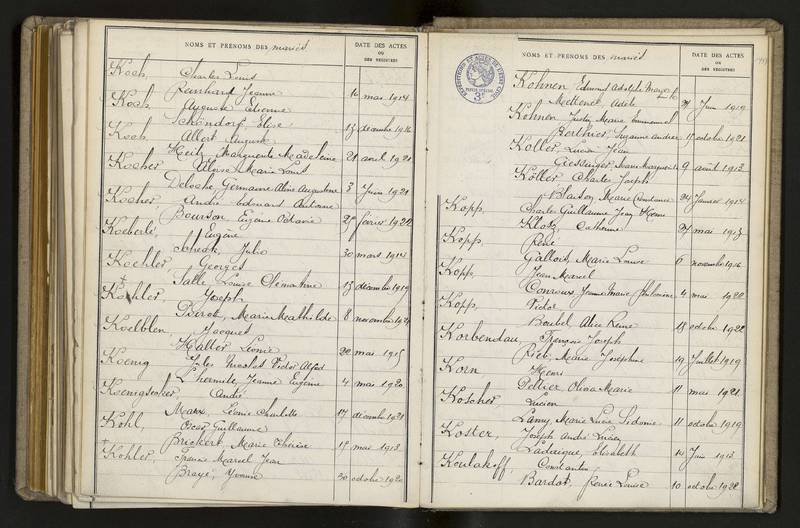 NOMS ET PRÉNOMS DES mariés
DATE DES ACTES
OU
DES REGISTRES
Koch, Charles Louis
Reinhard Jeanne 16 mai 1914
Koch Auguste Etienne
Schöndorf, Elise 13 décembre 1916
Koch, Albert Auguste
Heitz, Marguerite Madeleine 21 avril 1921
Kocher Alfred Marie Louis
Deloche, Germaine Aline Augustine 3 Juin 1921
Kocher André Edouard Antoine
Bourson, Eugénie Octavie 25 février 1922
Koeberlé, Eugène
Scheck, Julie 30 mars 1914
Koechler Georges
Salle Louise Clémentine 13 décembre 1919
Koehler, Joseph
Pierot, Marie Mathilde 8 novembre 1921
Koelblen, Jacques
Halter Léonie 20 mai 1915
Koenig Jules Nicolas Victor Alfred
Lhermite, Jeanne Eugénie 4 mai 1920
Koenigsecker, André
Meaux, Léonie Charlotte 17 décembre 1921
Kohl, Oscar Guillaume
Brickert, Marie Thérèse 15 mai 1913
Kohler, Francis Marcel Jean
Braye, Yvonne 30 octobre 1920
NOMS ET PRÉNOMS DES mariés
DATE DES ACTES
OU
DES REGISTRES
Kohnen Edmond Adolphe
Methenet, Adèle 27 Juin 1919
Kohnen Marie Emmanuel
Berthier, Suzanne Andrée 15 octobre 1921
Koller, Lucien Jean
Giessinger, Marguerite 9 août 1913
Köller Charles Joseph
Blaison, Marie Constance 29 Janvier 1914
Kopp, Charles Guillaume Jean Henri
Klotz, Catherine 27 mai 1913
Kopp, René
Gallois, Marie Louise 6 novembre 1916
Kopp, Jean Marcel
Conroux, Jeanne Marie Philomène 4 mai 1920
Kopp, Victor
Boubel, Alice Reine 18 octobre 1922
Korbendau, François Joseph
Piet, Marie Joséphine 19 Juillet 1919
Korn Henri
Pellier Olivia Marie 11 mai 1921
Koscher Lucien
Lamy, Marie Lucie Sidonie 11 octobre 1919
Koster, Joseph André Lucien
Ladaique, Elisabeth 14 Juin 1913
Koulakoff, Constantin
Bardot, Renée Louise 10 octobre 1922